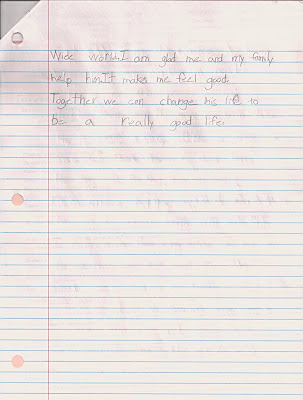 Wide world. I am glad me and my family
help him. It makes me feel good.
Together we can change his life to
be a really good life.